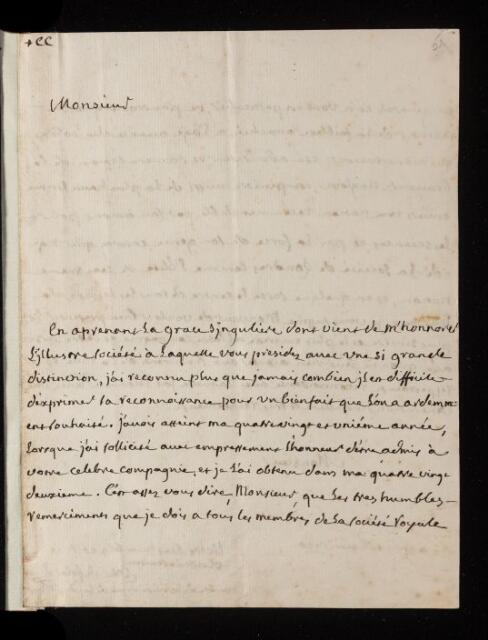 +CC
Monsieur
En aprenant La grace Singuliere dont vient de m'honnorer
L'illustre société à Laquelle vous présidez avec une si grande
distinction, j'ai reconnu plus que jamais combien il est difficile
d'exprimer sa reconnaissance pour un bienfait que L'on a ardemm
ent souhaité. j'avois atteint ma quatre vingt et unième année,
Lorsque j'ai sollicité avec empressement L'honneur d'être admis à
votre celebre compagnie, et je L'ai obtenu dans ma quatre vingt
deuxieme. C'est assez vous dire, Monsieur, que Les tres humbles
remerciments que je dois a tous les membres de La société Royale